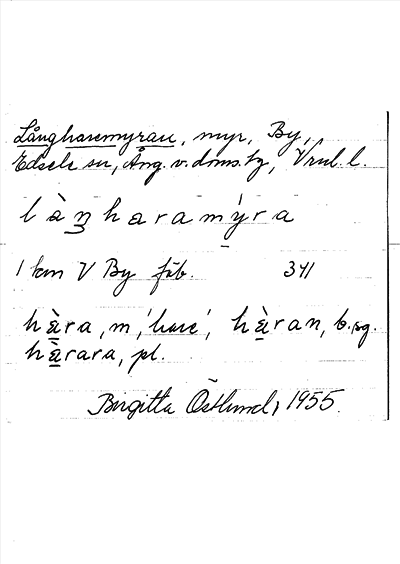 Långharemyran, myr, By,
Edsele sn, Ång. v. doms. hg, Vnl. l.
làŋharamýra
1 km V By fäb. 341
hàra, m, 'hare', hàran, b. sg.
hàrara, pl.
Birgitta Östlund, 1955.